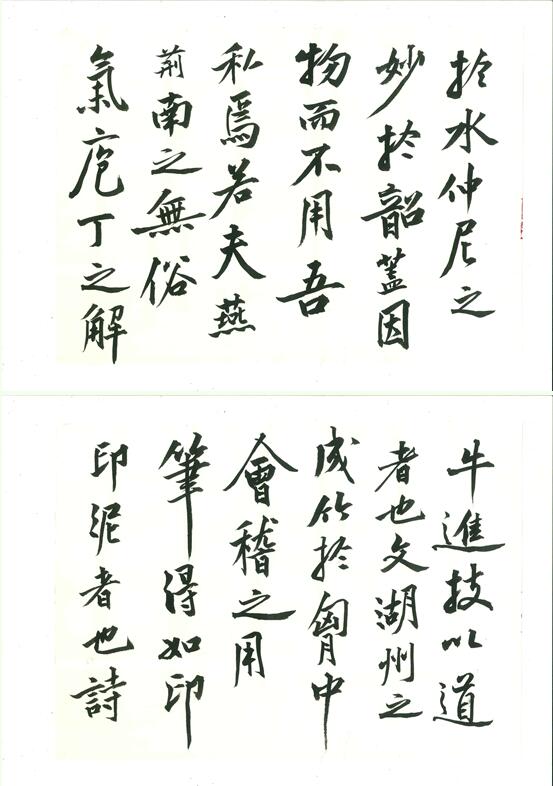 於水仲尼之
妙於韶蓋因
物而不用吾
私焉若夫燕
荊南之無俗
氣庖丁之解
牛進技以道
者也文湖州之
成竹於胸中
會稽之用
筆得如印
印泥者也詩